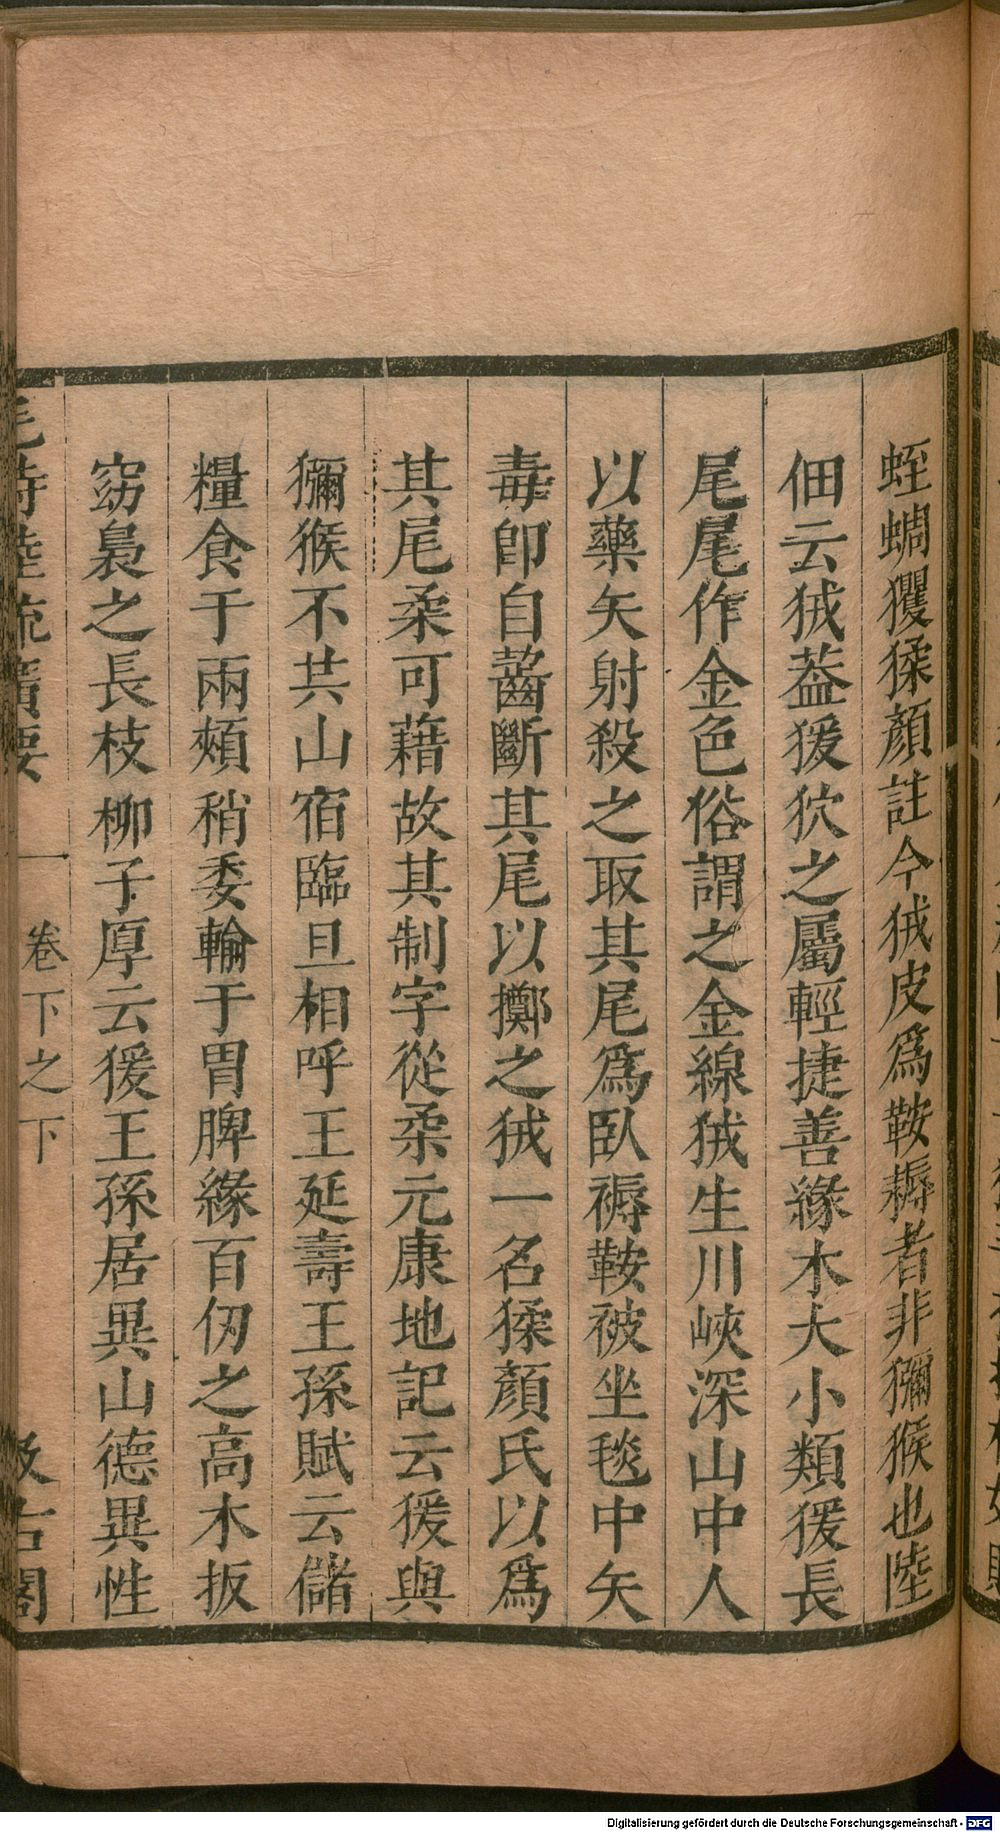 蛭蜩玃猱顏註今狨皮爲鞍褥者非獼猴也陸
佃云狨葢猨狖之屬輕捷善緣木大小類猨長
尾尾作金色俗謂之金線狨生川峽深山中人
以藥矢射殺之取其尾爲臥褥鞍被坐毯中矢
毒卽自齧斷其尾以擲之狨一名猱顏氏以爲
其尾柔可藉故其制字從柔元康地記云猨與
獼猴不共山宿臨旦相呼王延壽王孫賦云儲
糧食于兩頰稍委輸于胃脾緣百仞之高木扳
窈裊之長枝柳子厚云猨王孫居異山德異性
毛詩陸疏廣要 卷下之下 汲古閣
Digitalisierung gefördert durch die Deutsche Forschungsgemeinschaft - DFG